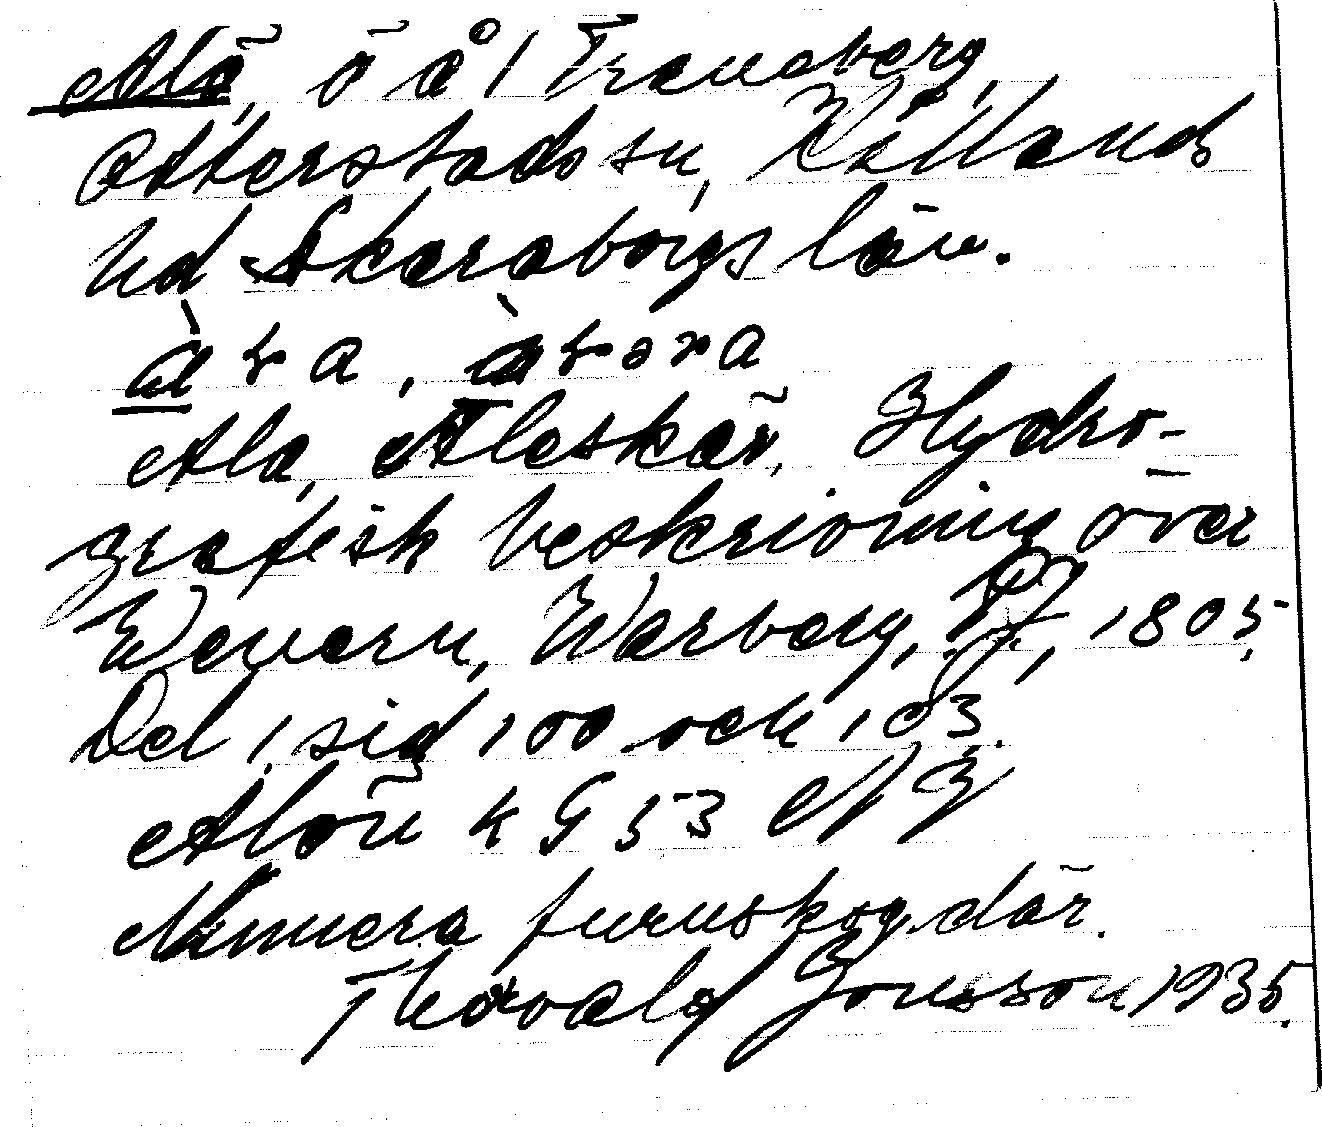 Alö, ö å 1 Traneberg,
Otterstads sn, Kållands
hd Skaraborgs län.
Ala, Aleskär, Hydro-
grafisk beskrivning över
Wenern, Warberg, 1805,
Del 1, sid 100 och 103.
Alön k G 53
Numera furuskog där.
Thorvald Jonsson 1935.